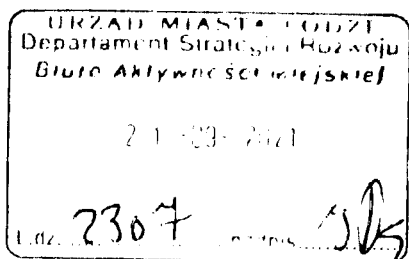 URZĄD MIASTA ŁODZI
Departament Strategii i Rozwoju
Biuro Aktywności Miejskiej
21 -09- 2021
L.dz. 2307 podpis